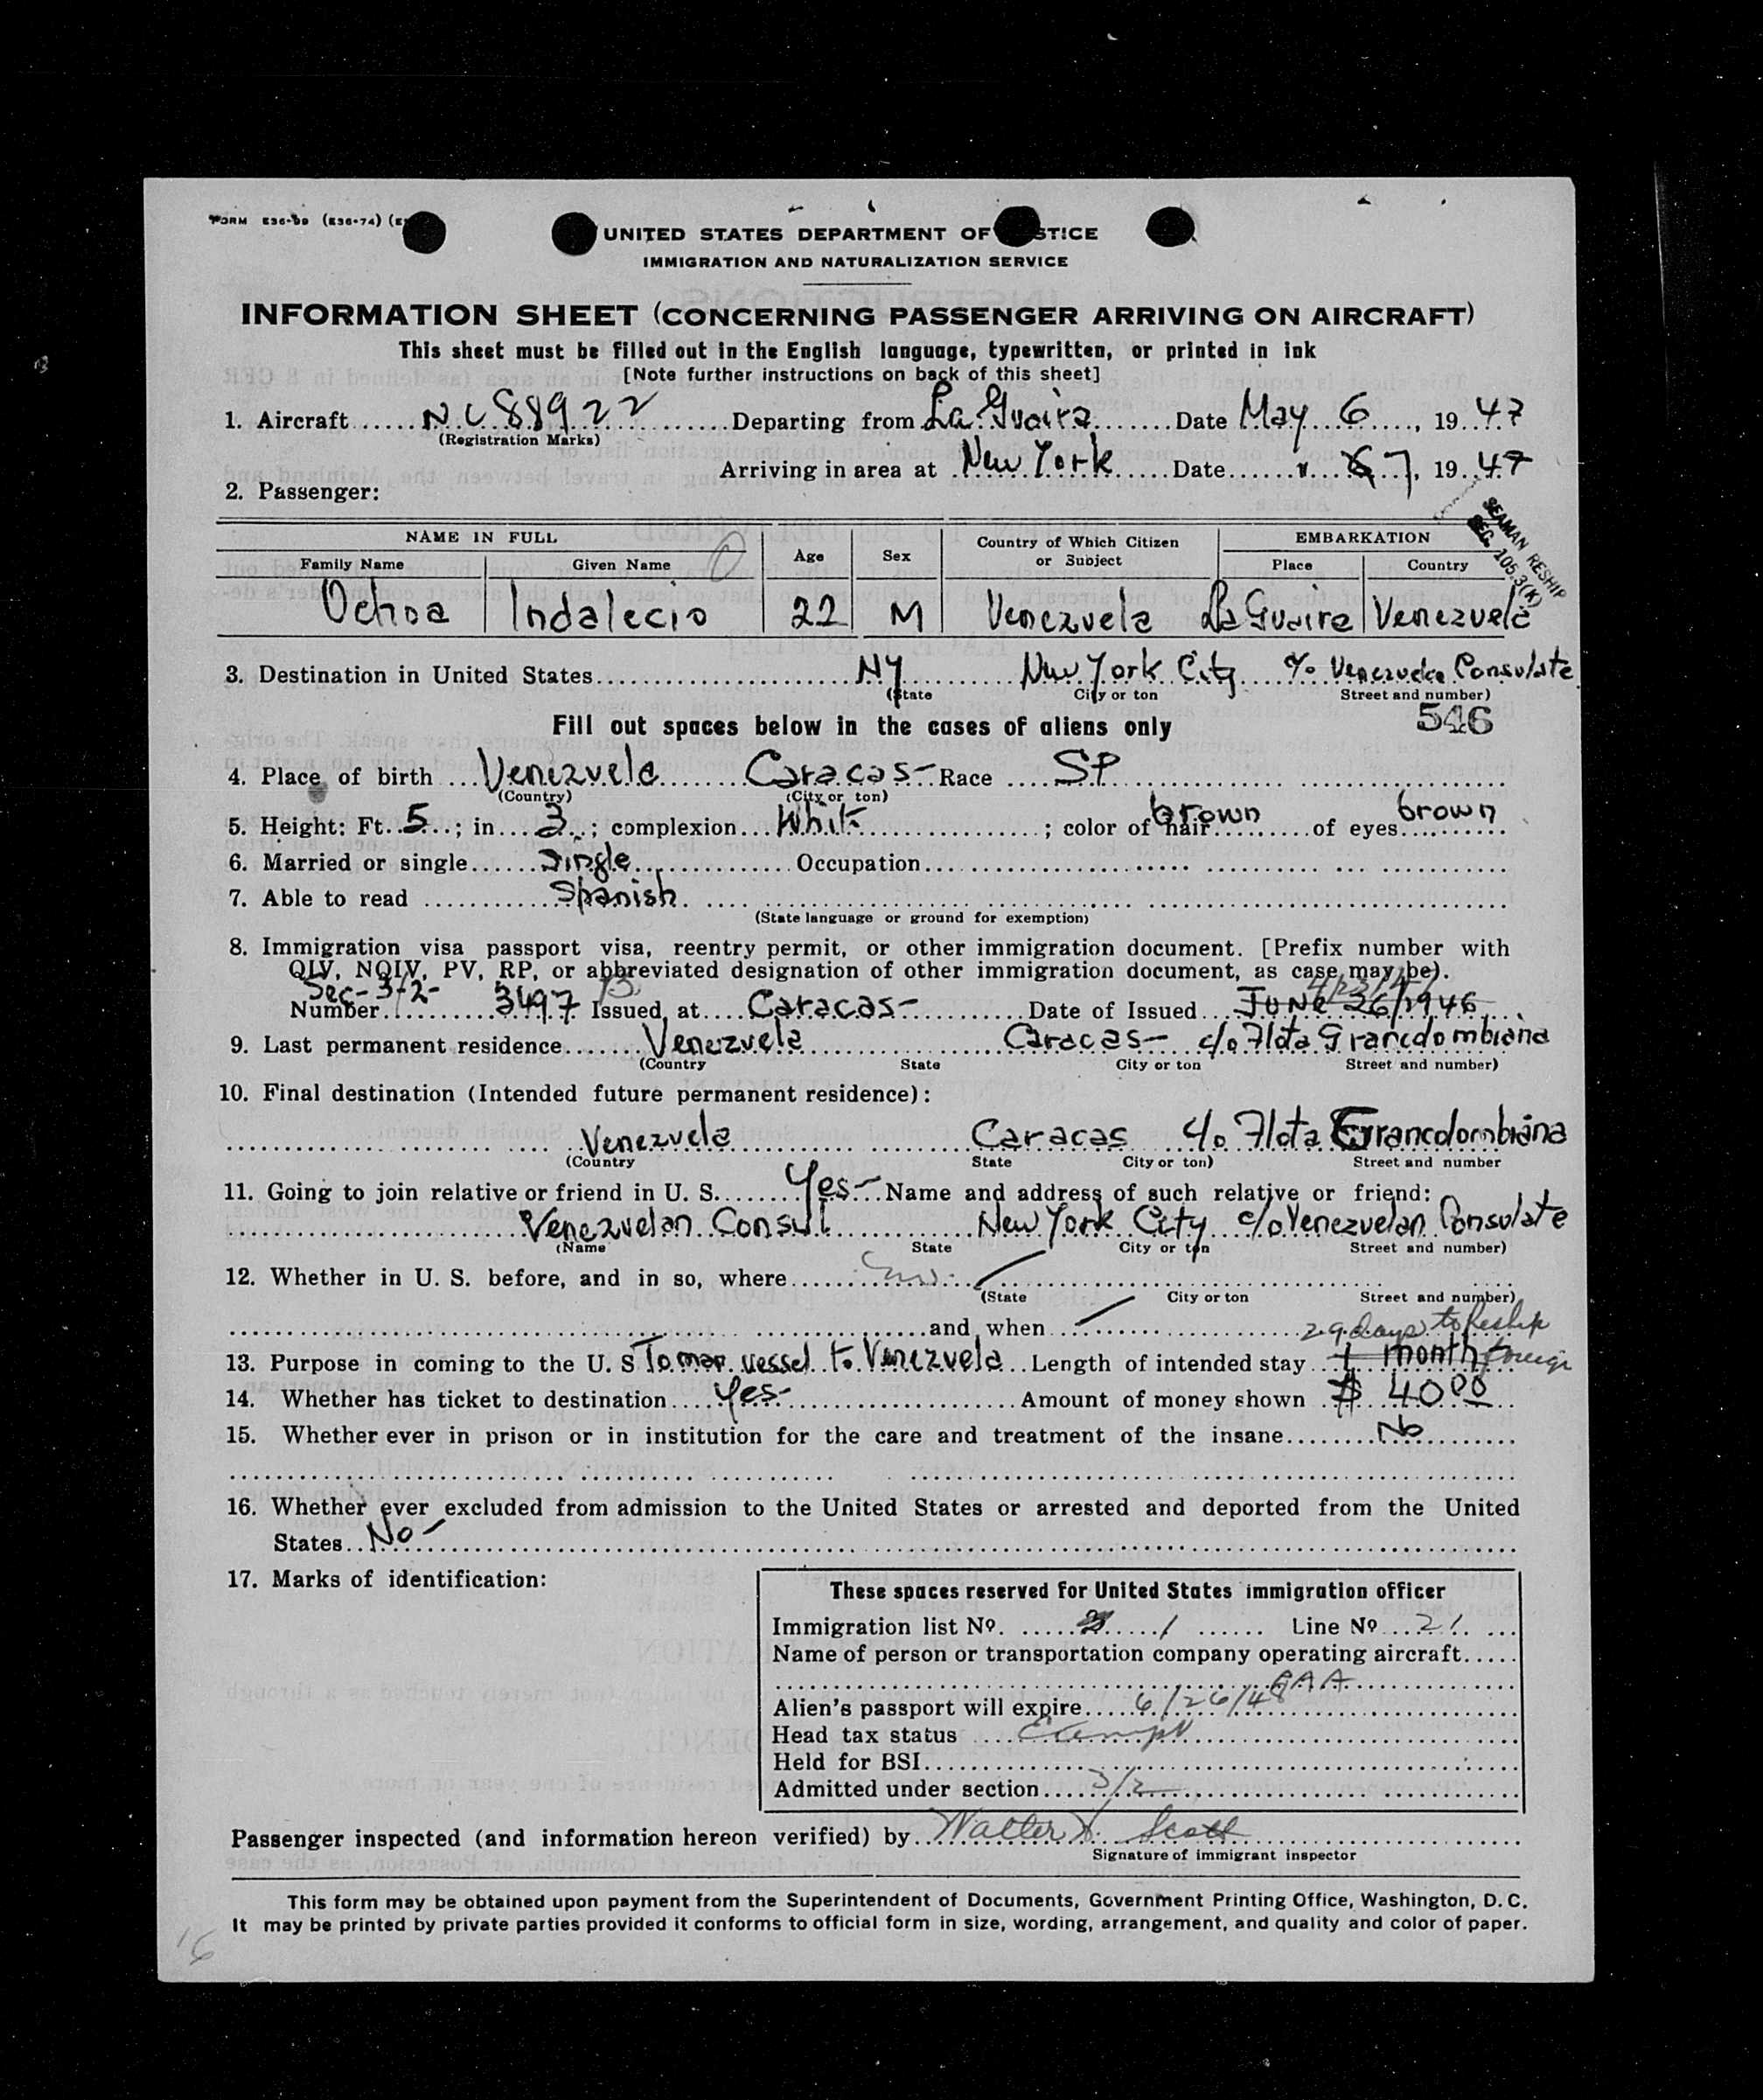 FORM E36-59 (E36-74)
UNITED STATES DEPARTMENT OF STICE
IMMIGRATION AND NATURALIZATION SERVICE
INFORMATION SHEET (CONCERNING PASSENGER ARRIVING ON AIRCRAFT)
This sheet must be filled out in the English language, typewritten, or printed in ink
[Note further instructions on back of this sheet]
1. Aircraft NC88922 Departing from La Guaira Date May 6, 1947
(Registration Marks)
Arriving in area at New York Date " 7, 1947
2. Passenger:
SEAMAN RESHIP
SEC. 105.3(K)
NAME IN FULL Age Sex Country of Which Citizen or Subject EMBARKATION
Family Name Given Name Place Country
Ochoa Indalecio 22 M Venezuela La Guaira Venezuela
3. Destination in United States NY New York City c/o Venezuela Consulate
(State City or ton Street and number)
Fill out spaces below in the cases of aliens only 546
4. Place of birth Venezuela Caracas- Race SP
(Country) (City or ton)
5. Height: Ft. 5; in 3; complexion White; color of hair brown of eyes brown
6. Married or single Single Occupation
7. Able to read Spanish
(State language or ground for exemption)
8. Immigration visa passport visa, reentry permit, or other immigration document. [Prefix number with
QIV, NQIV, PV, RP, or abbreviated designation of other immigration document, as case may be).
Sec-3-2-
Number 3497 Issued at Caracas- Date of Issued June 26/1946
9. Last permanent residence Venezuela Caracas- c/o Flota Grancolombiana
(Country State City or ton Street and number)
10. Final destination (Intended future permanent residence):
Venezuela Caracas c/o Flota Grancolombiana
(Country State City or ton) Street and number
11. Going to join relative or friend in U. S. Yes- Name and address of such relative or friend:
Venezuelan Consul New York City c/o Venezuelan Consulate
(Name State City or ton Street and number)
12. Whether in U. S. before, and in so, where
(State City or ton Street and number)
and when 29 days to Reship
13. Purpose in coming to the U. S To man vessel to Venezuela Length of intended stay 1 month foreign
14. Whether has ticket to destination Yes- Amount of money shown $ 40 00
15. Whether ever in prison or in institution for the care and treatment of the insane No
16. Whether ever excluded from admission to the United States or arrested and deported from the United
States No-
17. Marks of identification:
These spaces reserved for United States immigration officer
Immigration list No. 1 Line No 21
Name of person or transportation company operating aircraft
PAA
Alien's passport will expire 6/26/48
Head tax status Exempt
Held for BSI
Admitted under section 3/2
Passenger inspected (and information hereon verified) by Walter Scott
Signature of immigrant inspector
This form may be obtained upon payment from the Superintendent of Documents, Government Printing Office, Washington, D. C.
It may be printed by private parties provided it conforms to official form in size, wording, arrangement, and quality and color of paper.
16